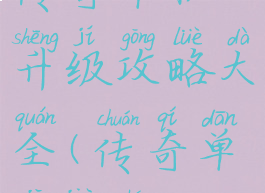 shēng jí gōng lüè dà
升级攻略大
quán chuán qí dān
全(传奇单